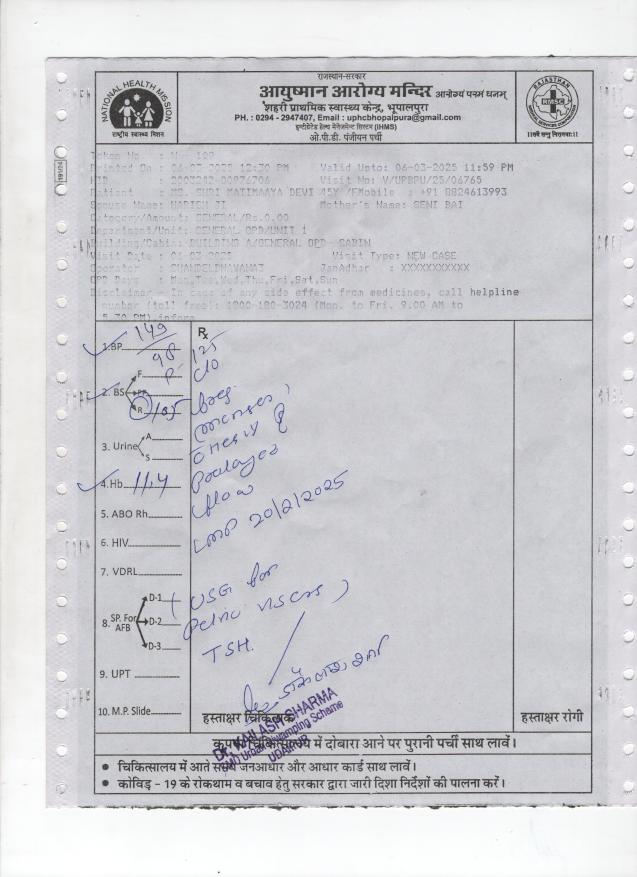 NATIONAL HEALTH MISSION
राष्ट्रीय स्वास्थ्य मिशन
राजस्थान-सरकार
आयुष्मान आरोग्य मन्दिर आरोग्यं परमं धनम्
शहरी प्राथमिक स्वास्थ्य केन्द्र, भूपालपुरा
PH. : 0294 - 2947407, Email : uphcbhopalpura@gmail.com
इन्टीग्रेटेड हेल्थ मेनेजमेन्ट सिस्टम (IHMS)
ओ.पी.डी. पंजीयन पर्ची
RAJASTHAN
RMSC
MEDICAL SERVICES CORPORATION
।।सर्वे सन्तु निरामयाः।।
Token No
Printed On : 06-03-2025 12:30 PM Valid Upto: 06-03-2025 11:59 PM
Visit No: V/UPBPU/25/06765
Patient : MS. MATIMAAYA DEVI 45Y /FMobile : +91 8824613993
Spouse Name: HARISH JI Mother's Name: SENI BAI
Category/Amount: GENERAL/Rs.0.00
Department/Unit: GENERAL OPD/UNIT 1
Building/Cabin: BUILDING A/GENERAL OPD- SABIN
Visit Date : 06-03-2025 Visit Type: NEW CASE
Operator : JanAdhar : XXXXXXXXXXX
OPD Days : Mon,Tue,Wed,Thu,Fri,Sat,Sun
Disclaimer - In case of any side effect from medicines, call helpline
number (toll free): 1800-180-3024 (Mon. to Fri. 9.00 AM to
5.30 PM)
Rx
1.BP 149
98
P- 125
c/o
2. BS F PP R 105
menses
3. Urine A S
4.Hb 11.4
flow
5. ABO Rh
LMP 20/2/2025
6. HIV
7. VDRL
(USG for
Pelvic viscera)
8. SP. For AFB D-1 D-2 D-3
TSH.
9. UPT
10. M.P. Slide
हस्ताक्षर चिकित्सक
हस्ताक्षर रोगी
Dr. KAILASH SHARMA
Urban Revamping Scheme
UDAIPUR
कृपया चिकित्सालय में दोबारा आने पर पुरानी पर्ची साथ लावें।
• चिकित्सालय में आते समय जनआधार और आधार कार्ड साथ लावें।
• कोविड़ - 19 के रोकथाम व बचाव हेतु सरकार द्वारा जारी दिशा निर्देशों की पालना करें।